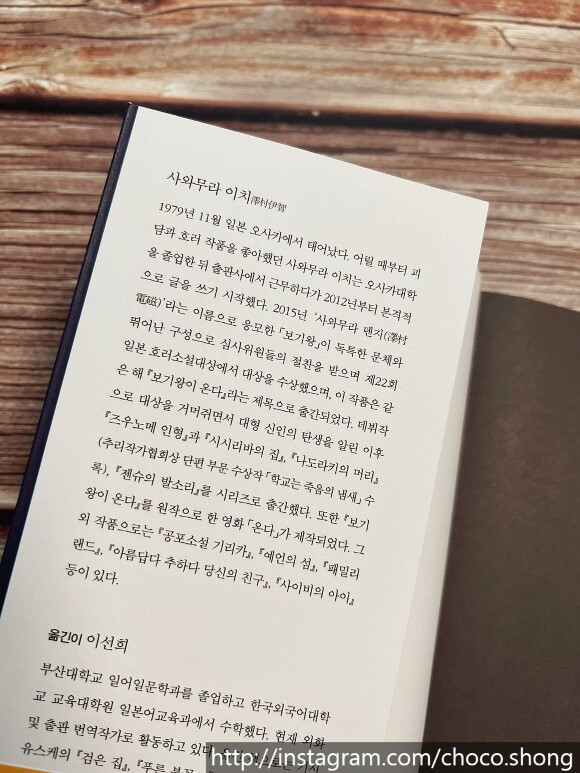 사와무라 이치澤村伊智
1979년 11월 일본 오사카에서 태어났다. 어릴 때부터 괴
담과 호러 작품을 좋아했던 사와무라 이치는 오사카대학
을 졸업한 뒤 출판사에서 근무하다가 2012년부터 본격적
으로 글을 쓰기 시작했다. 2015년 ‘사와무라 덴지(澤村
電磁)’라는 이름으로 응모한 「보기왕」이 독특한 문체와
뛰어난 구성으로 심사위원들의 절찬을 받으며 제22회
일본 호러소설대상에서 대상을 수상했으며, 이 작품은 같
은 해 『보기왕이 온다』라는 제목으로 출간되었다. 데뷔작
으로 대상을 거머쥐면서 대형 신인의 탄생을 알린 이후
『즈우노메 인형』과 『시시리바의 집』, 『나도라키의 머리』
(추리작가협회상 단편 부문 수상작 「학교는 죽음의 냄새」 수
록), 『젠슈의 발소리』를 시리즈로 출간했다. 또한 『보기
왕이 온다』를 원작으로 한 영화 「온다」가 제작되었다. 그
외 작품으로는 『공포소설 기리카』, 『예언의 섬』, 『패밀리
랜드』, 『아름답다 추하다 당신의 친구』, 『사이비의 아이』
등이 있다.
옮긴이 이선희
부산대학교 일어일문학과를 졸업하고 한국외국어대학
교 교육대학원 일본어교육과에서 수학했다. 현재 외화
및 출판 번역작가로 활동하고 있다.
유스케의 『검은 집』, 『푸른
http://instagram.com/choco.shong